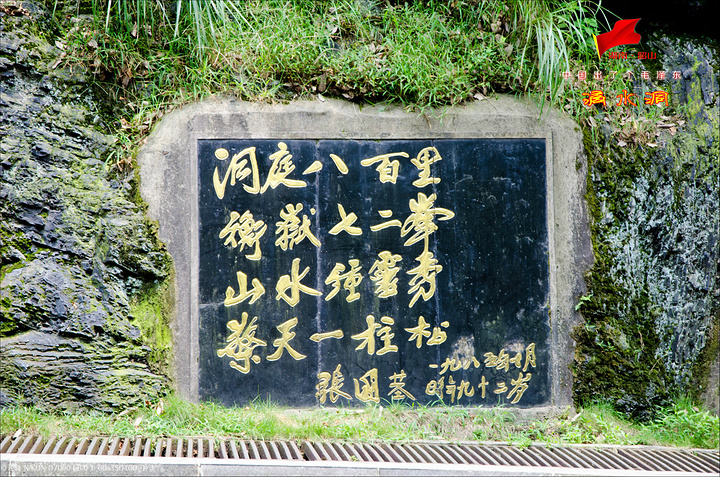 洞庭八百里
衡嶽七二峯
山水鍾靈秀
擎天一柱松
一九八五年十月
張国基 时年九十二岁
韶山
中国出了个毛泽东
滴水洞